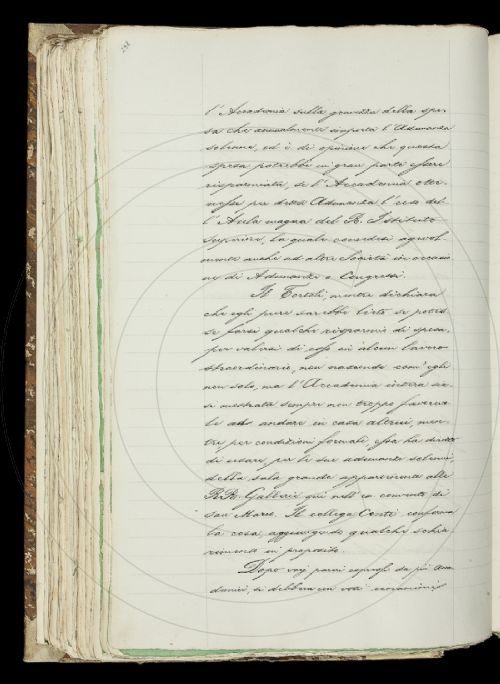 l'Accademia sulla gravezza della spe-
sa che annualmente importa l'Adunanza
solenne, ed è di opinione che questa
spesa potrebbe in gran parte essere
risparmiata, se l'Accademia otte-
nesse per detta Adunanza l'uso del-
l'Aula magna del R. Istituto
Superiore, la quale concedesi agevol-
mente anche ad altre Società in occasio-
ne di Adunanze o Congressi.
Il Tortoli, mentre dichiara
che egli pure sarebbe lieto se potes-
se farsi qualche risparmio di spesa,
per valersi di esso in alcun lavoro
straordinario, non nasconde com'egli
non solo, ma l'Accademia intera sia-
si mostrata sempre non troppo favorevo-
le ad andare in casa altrui, men-
tre per condizioni formali, essa ha diritto
di usare, per le sue adunanze solenni,
della sala grande appartenente alle
RR. Gallerie qui nell'ex convento di
San Marco. Il collega Conti conferma
la cosa, aggiungendo qualche schia-
rimento in proposito.
Dopo varj pareri espressi da più Acca-
demici, si delibera con voti